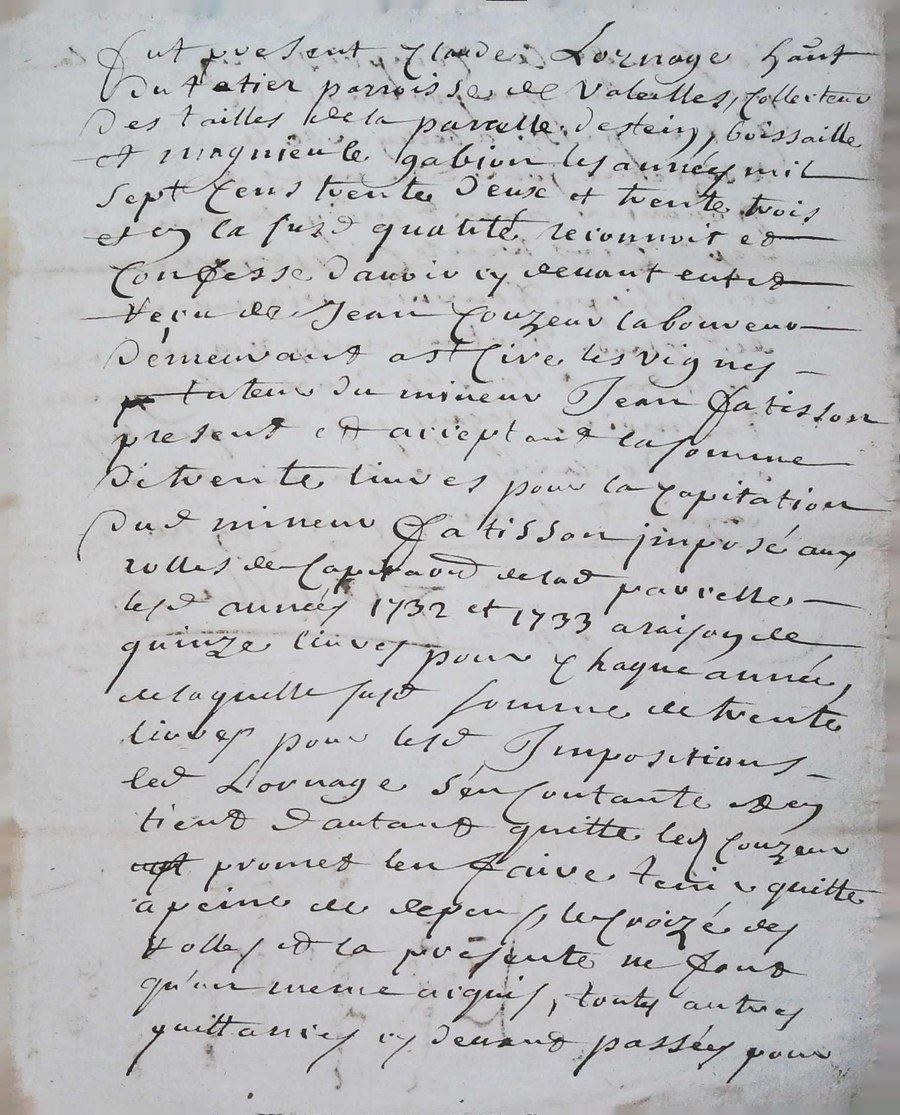 fut present Claude Lornage hant
du tetier parroisse de Valeilles, Collecteur
des tailles de la parcelle destein, boissaille
et magnieu le gabion les années mil
sept Cens trente deux et trente trois
et en la susd qualité reconnoit et
Confesse d'avoir cy devant eu et
reçu de Jean Couzeur laboureur
démeurant a st Cire les vignes
tuteur du mineur Jean Fatisson
present et acceptant la somme
de trente livres pour la Capitation
dud mineur Fatisson imposé aux
rolles de Capitaon de lad parcelle
lesd années 1732 et 1733 a raison de
quinze livres pour Chaque année,
de laquelle susd somme de trente
livres pour lesd Impositions
led Lornage s'en Contante et en
tient d'autant quitte led Couzeur
promet l'en faire tenir quitte
a peine de depens, le Croizé des
rolles et la présente ne font
qu'un meme aiquis, toutes autres
quittances cy devant passées pour